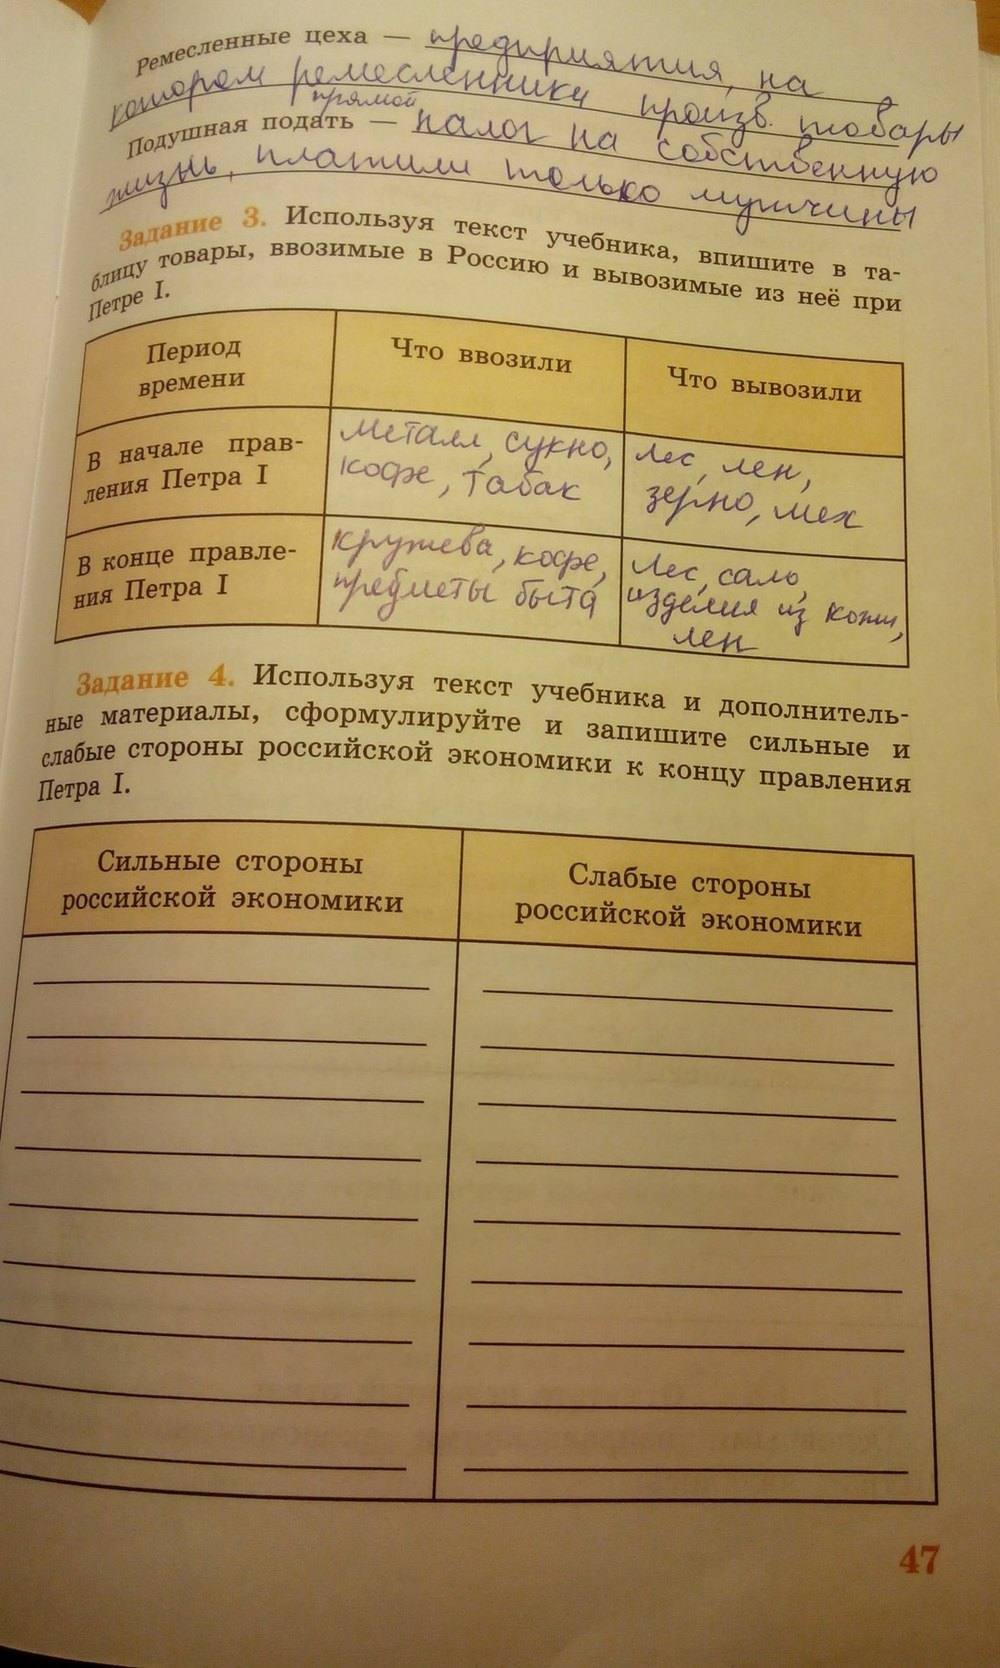 Ремесленные цеха — предприятия, на
котором ремесленники произв. товары
прямой
Подушная подать — налог на собственную
жизнь, платили только мужчины
Задание 3. Используя текст учебника, впишите в та-
блицу товары, ввозимые в Россию и вывозимые из неё при
Петре I.
Период
времени
Что ввозили
Что вывозили
В начале прав-
ления Петра I
Металл, сукно,
кофе, табак
Лес, лен,
зерно, мех
В конце правле-
ния Петра I
Кружева, кофе,
предметы быта
Лес, сало,
изделия из кожи,
лен
Задание 4. Используя текст учебника и дополнитель-
ные материалы, сформулируйте и запишите сильные и
слабые стороны российской экономики к концу правления
Петра I.
Сильные стороны
российской экономики
Слабые стороны
российской экономики
47